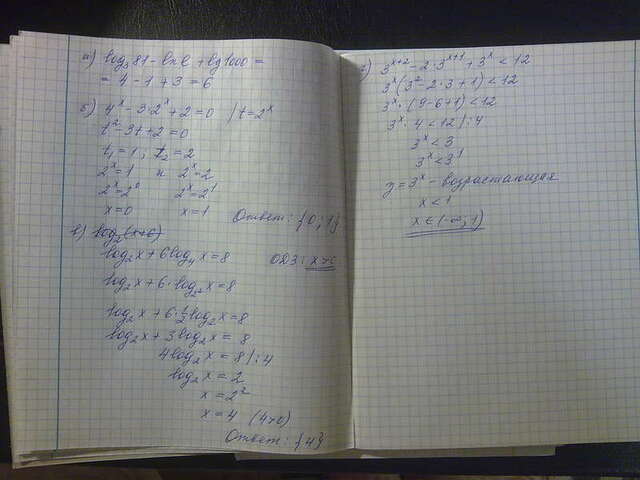 а) log₃81 - ln e + lg1000 =
= 4 - 1 + 3 = 6
б) 4ˣ - 3·2ˣ + 2 = 0 | t = 2ˣ
t² - 3t + 2 = 0
t₁ = 1; t₂ = 2
2ˣ = 1 и 2ˣ = 2
2ˣ = 2⁰ 2ˣ = 2¹
x = 0 x = 1
Ответ: {0; 1}
в) log₂(x+6)
log₂x + 6log₄x = 8 ОДЗ: x > 0
log₂x + 6·log₂²x = 8
log₂x + 6·½log₂x = 8
log₂x + 3log₂x = 8
4log₂x = 8 |:4
log₂x = 2
x = 2²
x = 4 (4>0)
Ответ: {4}
3ˣ⁺² - 2·3ˣ⁺¹ + 3ˣ < 12
3ˣ(3² - 2·3 + 1) < 12
3ˣ·(9 - 6 + 1) < 12
3ˣ·4 < 12 |:4
3ˣ < 3
3ˣ < 3¹
y = 3ˣ - возрастающая
x < 1
x ∈ (-∞; 1)